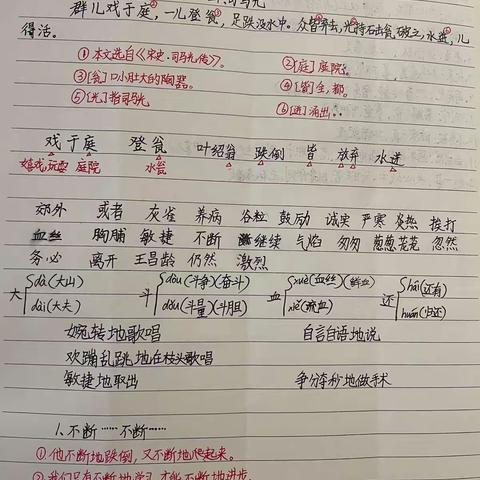 群儿戏于庭②,一儿登瓮③,足跌没水中。众皆④弃去,光⑤持石击瓮破之,水迸⑥,儿
得活。
①本文选自《宋史·司马光传》。 ②[庭]庭院。
③[瓮]口小肚大的陶器。 ④[皆]全,都。
⑤[光]指司马光 ⑥[迸]涌出。
戏于庭 登瓮 叶绍翁 跌倒 皆 放弃 水迸
嬉戏,玩耍 庭院 水瓮
郊外 或者 灰雀 养病 谷粒 鼓励 诚实 严寒 炎热 挨打
血丝 胸脯 敏捷 不断 继续 气焰 匆匆 葱葱茏茏 忽然
务必 离开 王昌龄 仍然 激烈
大{dà(大山) 斗{dòu(斗争)(奋斗) 血{xuè(血丝)(鲜血) 还{hái(还有)
dài(大夫) dǒu(斗量)(斗胆) xiě(流血) huán(归还)
婉转地歌唱 自言自语地说
欢蹦乱跳地在枝头歌唱
敏捷地取出 争分夺秒地做手术
1、不断……不断……
①他不断地跌倒,又不断地爬起来。
②我们只有不断地学习,才能不断地进步。